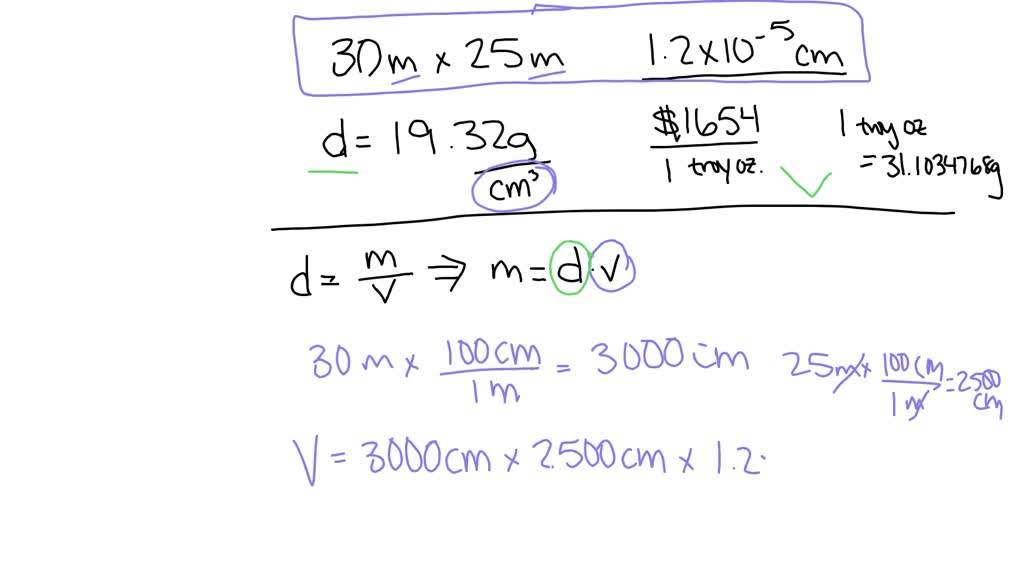 30m × 25m 1.2×10⁻⁵ cm
d = 19.32g/cm³ $1654/1 troy oz. 1 troy oz = 31.1034768g
d = m/V ⇒ m = d·V
30 m × 100cm/1m = 3000cm 25m × 100cm/1m = 2500 cm
V = 3000cm × 2500cm × 1.2·